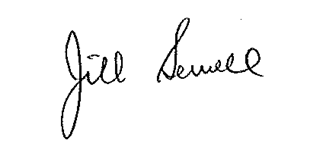 Jill Sewell